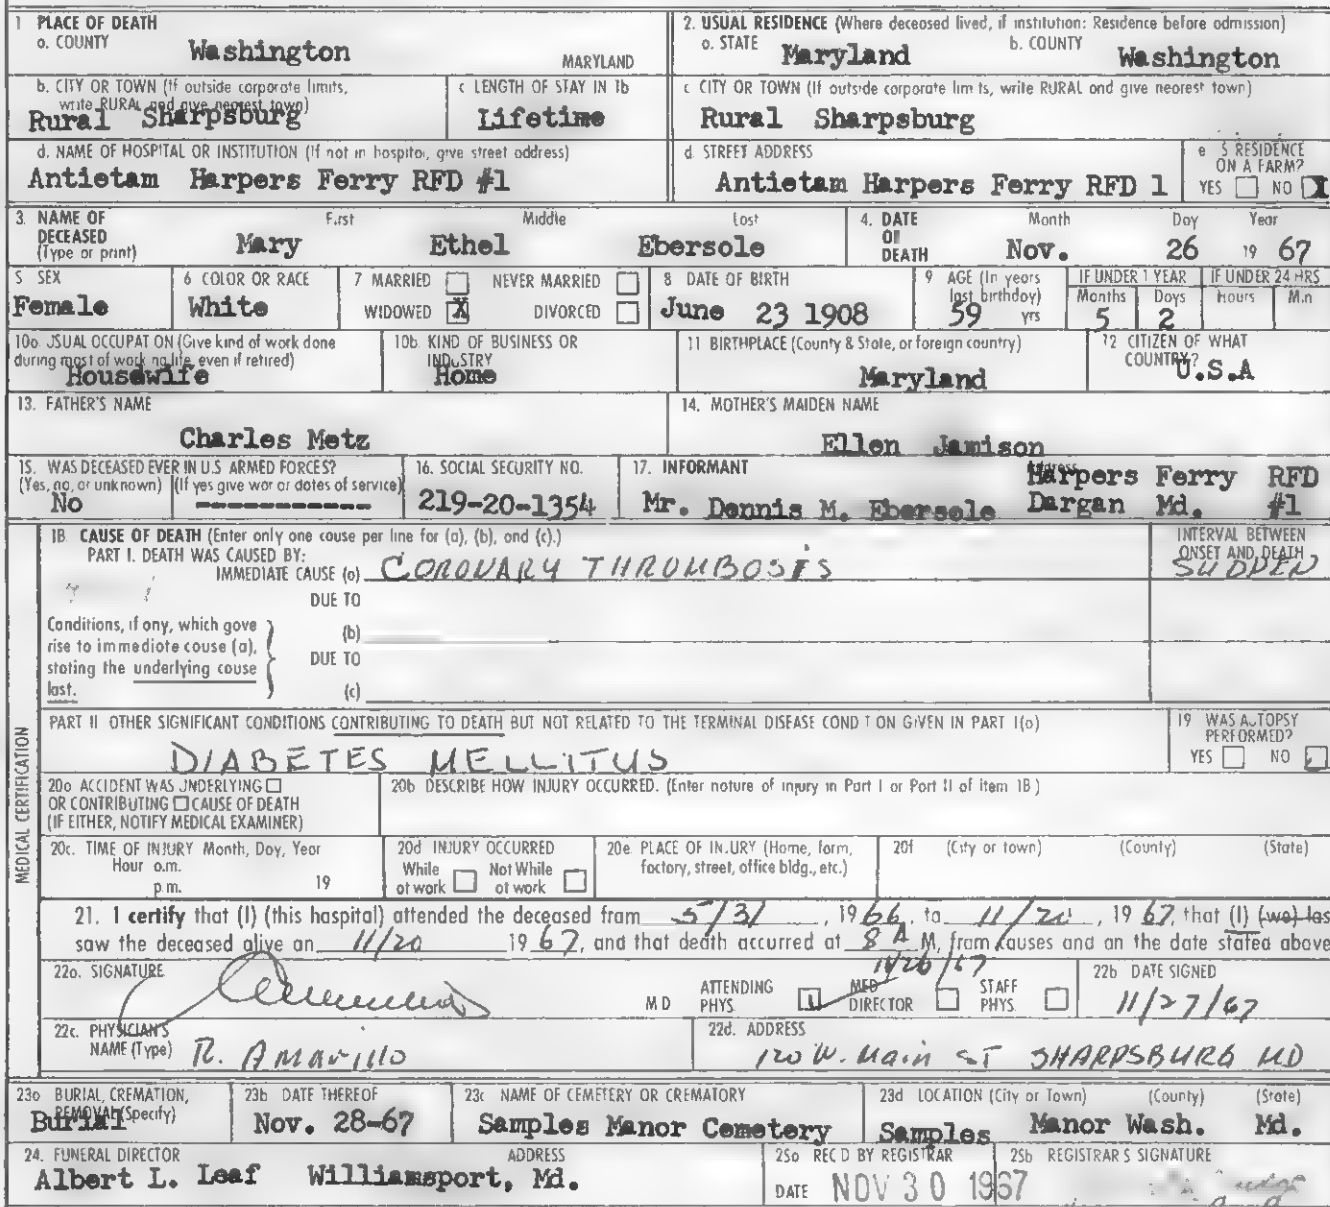 1 PLACE OF DEATH
a. COUNTY
Washington
MARYLAND
2. USUAL RESIDENCE (Where deceased lived, if institution: Residence before admission)
a. STATE Maryland b. COUNTY Washington
b. CITY OR TOWN (If outside corporate limits, write RURAL and give nearest town)
Rural Sharpsburg
c LENGTH OF STAY IN 1b
Lifetime
c CITY OR TOWN (If outside corporate limits, write RURAL and give nearest town)
Rural Sharpsburg
d. NAME OF HOSPITAL OR INSTITUTION (If not in hospital, give street address)
Antietam Harpers Ferry RFD #1
d STREET ADDRESS
Antietam Harpers Ferry RFD 1
e IS RESIDENCE ON A FARM?
YES NO X
3. NAME OF DECEASED (Type or print)
First Middle Last
Mary Ethel Ebersole
4. DATE OF DEATH
Month Day Year
Nov. 26 19 67
5 SEX
Female
6 COLOR OR RACE
White
7 MARRIED NEVER MARRIED
WIDOWED X DIVORCED
8 DATE OF BIRTH
June 23 1908
9 AGE (In years last birthday)
59 yrs
IF UNDER 1 YEAR
Months Days
5 2
IF UNDER 24 HRS
Hours Min
10a. USUAL OCCUPATION (Give kind of work done during most of working life, even if retired)
Housewife
10b. KIND OF BUSINESS OR INDUSTRY
Home
11 BIRTHPLACE (County & State, or foreign country)
Maryland
12 CITIZEN OF WHAT COUNTRY?
U.S.A
13. FATHER'S NAME
Charles Metz
14. MOTHER'S MAIDEN NAME
Ellen Jamison
15. WAS DECEASED EVER IN U.S ARMED FORCES?
(Yes, no, or unknown) (If yes give war or dates of service)
No -----------
16. SOCIAL SECURITY NO.
219-20-1354
17. INFORMANT Address
Mr. Dennis M. Ebersole
Harpers Ferry RFD
Dargan Md. #1
MEDICAL CERTIFICATION
18 CAUSE OF DEATH (Enter only one cause per line for (a), (b), and (c).)
PART I. DEATH WAS CAUSED BY:
IMMEDIATE CAUSE (a) CORONARY THROMBOSIS
INTERVAL BETWEEN ONSET AND DEATH
SUDDEN
DUE TO
Conditions, if any, which gave rise to immediate cause (a), stating the underlying cause last.
(b)
DUE TO
(c)
PART II OTHER SIGNIFICANT CONDITIONS CONTRIBUTING TO DEATH BUT NOT RELATED TO THE TERMINAL DISEASE CONDITION GIVEN IN PART I(a)
DIABETES MELLITUS
19 WAS AUTOPSY PERFORMED?
YES NO
20a ACCIDENT WAS UNDERLYING
OR CONTRIBUTING CAUSE OF DEATH
(IF EITHER, NOTIFY MEDICAL EXAMINER)
20b DESCRIBE HOW INJURY OCCURRED. (Enter nature of injury in Part I or Part II of item 18)
20c. TIME OF INJURY Month, Day, Year
Hour a.m.
p.m. 19
20d INJURY OCCURRED
While at work Not While at work
20e PLACE OF INJURY (Home, farm, factory, street, office bldg., etc.)
20f (City or town) (County) (State)
21. I certify that (I) (this hospital) attended the deceased from 5/31, 1966, to 11/20, 1967, that (I) (we) las
saw the deceased alive on 11/20 1967, and that death occurred at 8 A M, from causes and on the date stated above
11/26/67
22a. SIGNATURE
M D
ATTENDING PHYS
MED DIRECTOR
STAFF PHYS
22b DATE SIGNED
11/27/67
22c. PHYSICIAN'S NAME (Type) R. Amarillo
22d. ADDRESS
120 W. Main ST SHARPSBURG MD
23a BURIAL, CREMATION, REMOVAL (Specify)
Burial
23b DATE THEREOF
Nov. 28-67
23c NAME OF CEMETERY OR CREMATORY
Samples Manor Cemetery
23d LOCATION (City or Town) (County) (State)
Samples Manor Wash. Md.
24. FUNERAL DIRECTOR ADDRESS
Albert L. Leaf Williamsport, Md.
25a REC'D BY REGISTRAR
DATE NOV 30 1967
25b REGISTRAR'S SIGNATURE